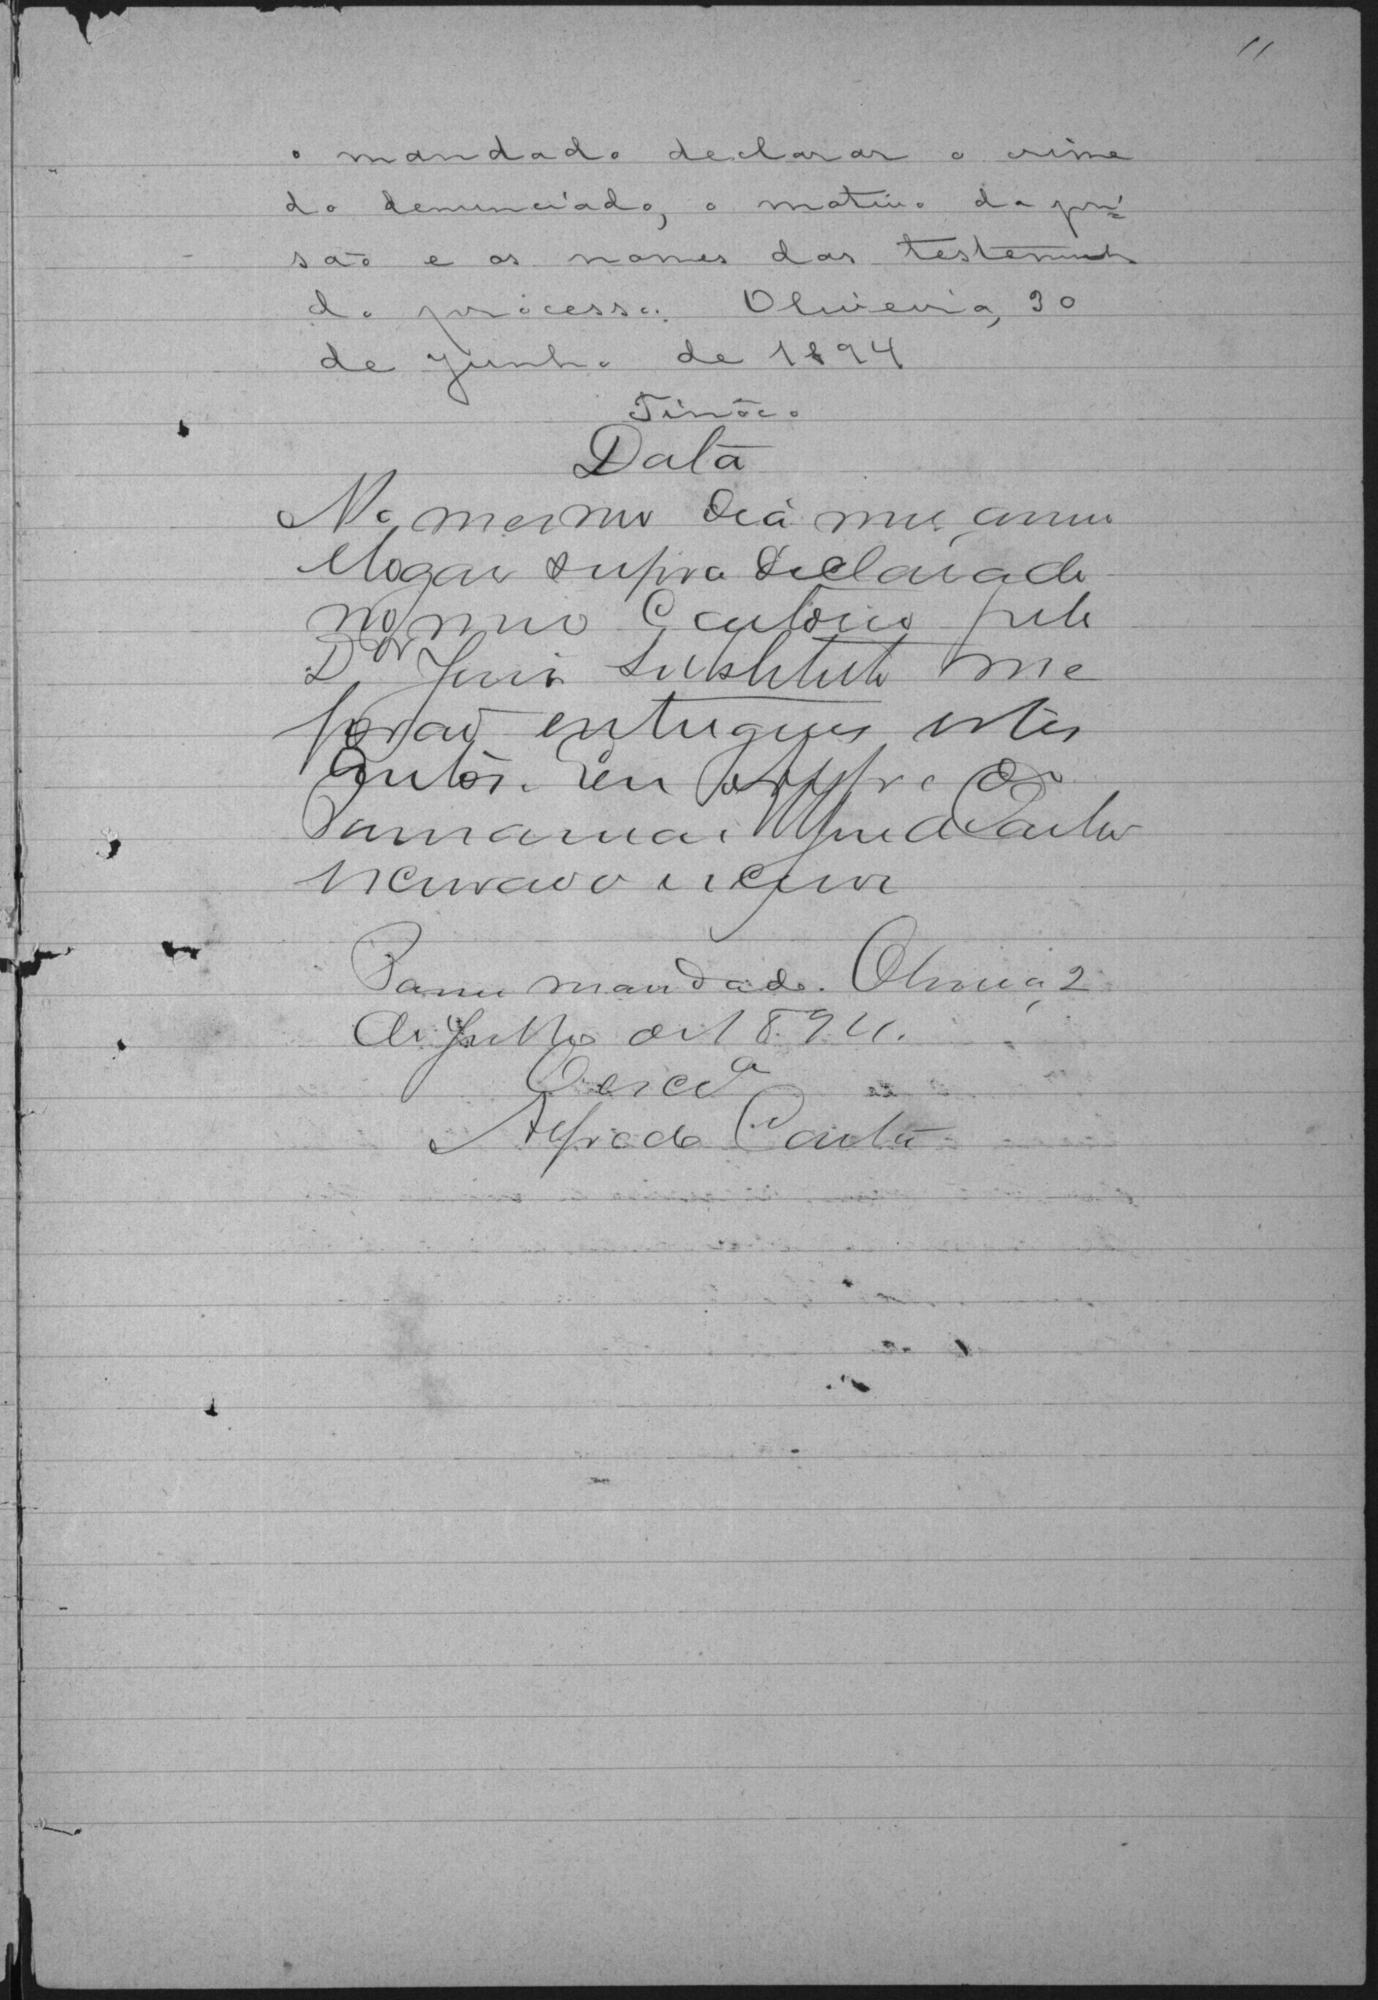 11
o mandado declarar o crime
do denunciado, o motivo da pri=
são e os nomes das testemunhs
do processo. Oliveira, 30
de Junho de 1894
Tinôco
Data
No mesmo dia mez, anno
e logar supra declarado
no meu Cartorio pelo
Dor Juiz Substituto me
forão entregues estes
autos. Eu
Alfredo Castro
escrivão o escrevi
Passei mandado. Oliveira, 2
de Julho de 1894.
O escam
Alfredo Castro